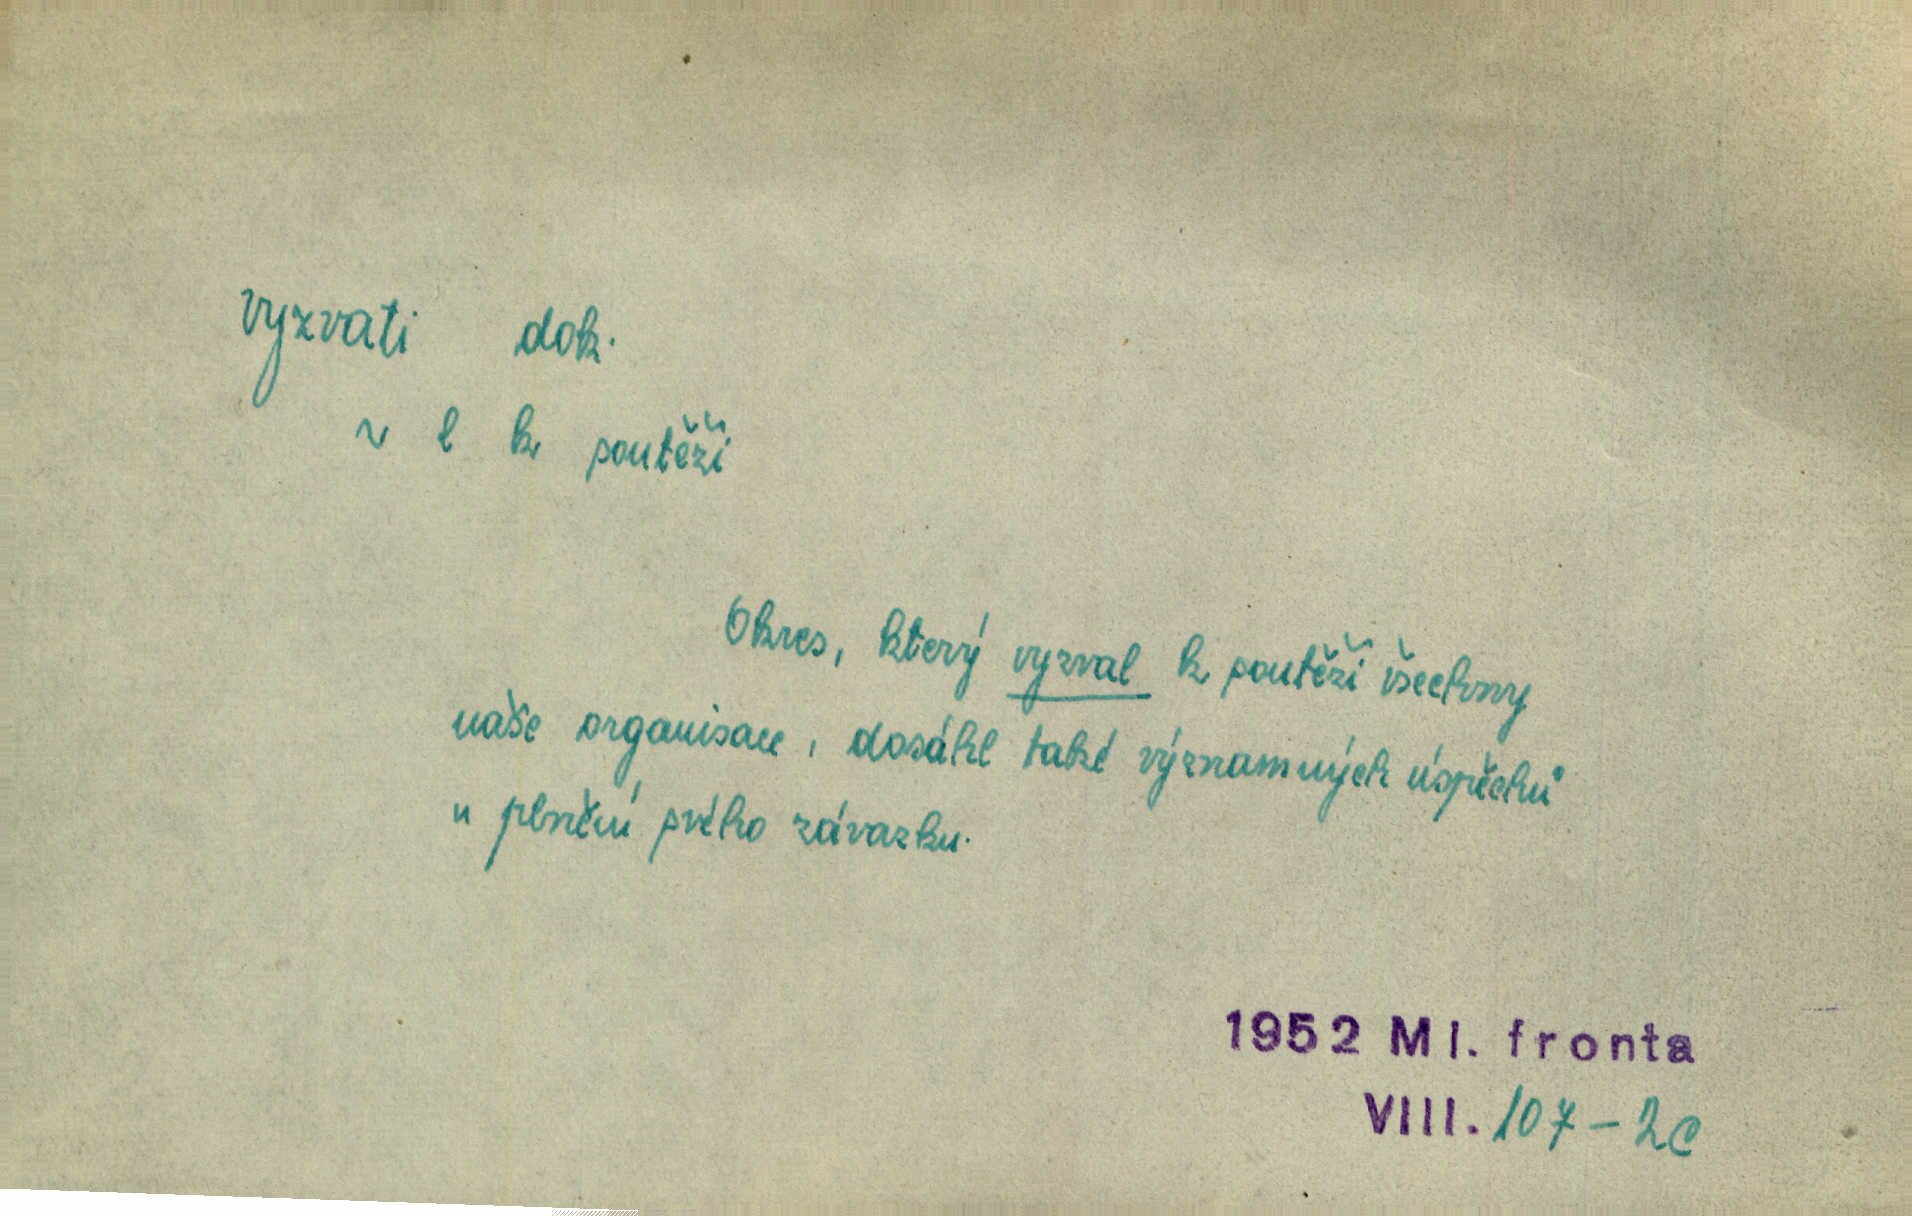 vyzvati dok.
v l k soutěži
Okres, který vyzval k soutěži všechny
naše organisace, dosáhl také významných úspěchů
v plnění svého závazku.
1952 Ml. fronta
VIII. 107-2c